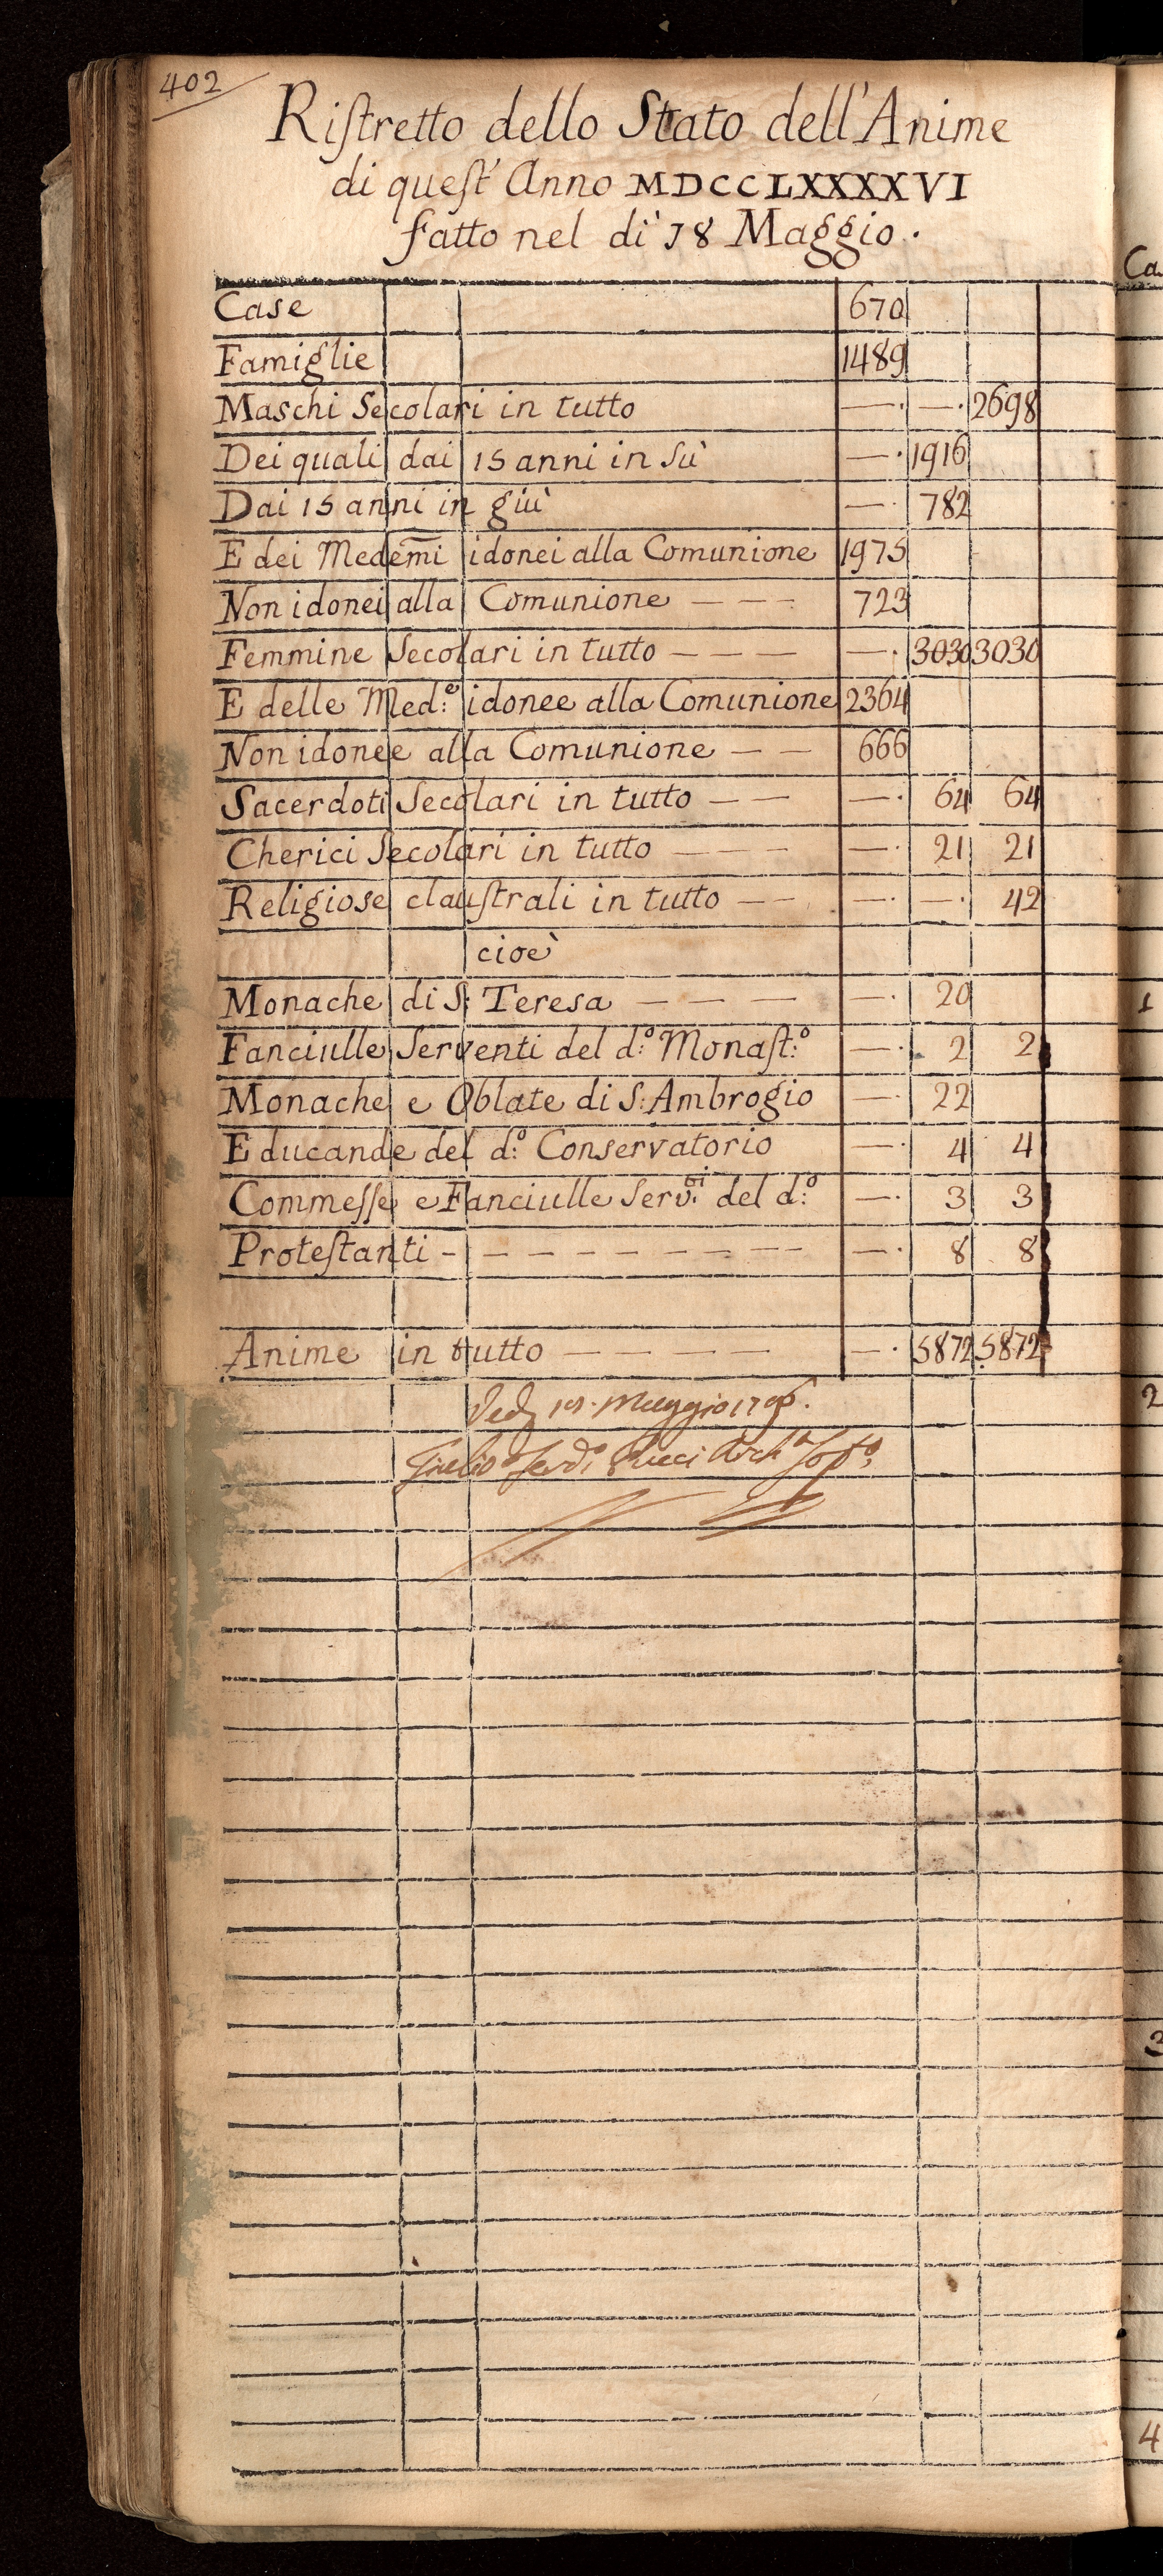 402
Riſtretto dello Stato dell'Anime
di queſt' Anno MDCCLXXXXVI
fatto nel dì 18 Maggio.
Case 670
Famiglie 1489
Maschi Secolari in tutto —· —· 2698
Dei quali dai 15 anni in sù —· 1916
Dai 15 anni in giù —· 782
E dei Medem̄i idonei alla Comunione 1975
Non idonei alla Comunione — — — 723
Femmine Secolari in tutto — — — —· 3030 3030
E delle Med:e idonee alla Comunione 2364
Non idonee alla Comunione — — 666
Sacerdoti Secolari in tutto — — —· 64 64
Cherici Secolari in tutto — — — —· 21 21
Religiose clauſtrali in tutto — — —· —· 42
cioè
Monache di S: Teresa — — — — —· 20
Fanciulle Serventi del d:o Monaſt:o —· 2 2
Monache e Oblate di S: Ambrogio —· 22
Educande del d:o Conservatorio —· 4 4
Commeſſe e Fanciulle Serv:ti del d:o —· 3 3
Proteſtanti - — — — — — — — —· 8 8
Anime in tutto — — — — —· 5872 5872
Maggio 1796.
Ca
1
2
3
4